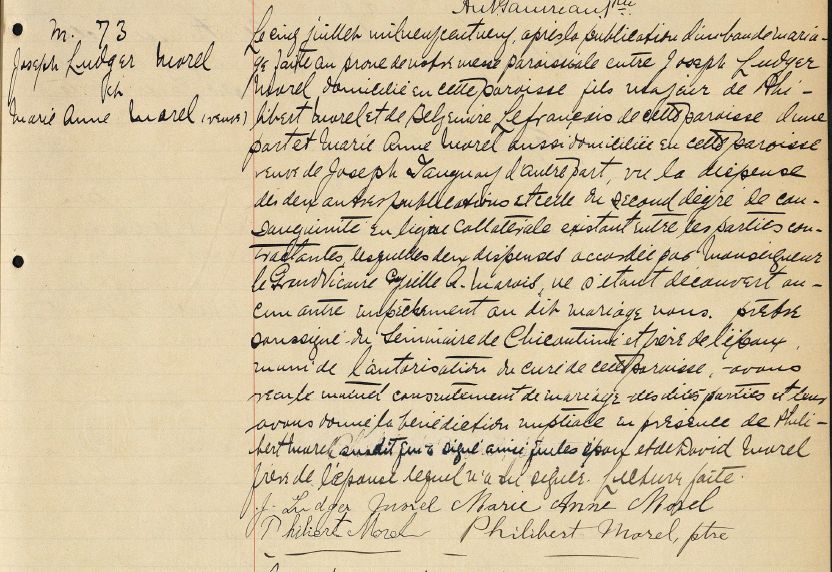 M. 73
Joseph Ludger Morel
et
Marie Anne Morel (veuve)
Le cinq juillet mil neuf cent neuf, après la publication d'un ban de maria-
ge faite au prône de notre messe paroissiale entre Joseph Ludger
Morel domicilié en cette paroisse fils majeur de Phi-
libert Morel et de Belzemire Lefrançois de cette paroisse d'une
part et Marie Anne Morel aussi domiciliée en cette paroisse
veuve de Joseph Tanguay d'autre part, vu la dispense
des deux autres publications et celle du second dégré de con-
sanguinité en ligne collatérale existant entre les parties con-
tractantes, lesquelles deux dispenses accordée par Monseigneur
le Grand Vicaire Cyrille A. Marois, ne s'étant découvert au-
cun autre empêchement au dit mariage nous. prêtre
soussigné du Séminaire de Chicoutimi et frère de l'époux,
muni de l'autorisation du curé de cette paroisse, avons
reçu le mutuel consentement de mariage des dites parties et leur
avons donné la bénédiction nuptiale en présence de Phili-
bert Morel susdit qui a signé ainsi que les époux et de David Morel
frère de l'épouse lequel n'a su signer. Lecture faite.
J. Ludger Morel Marie Anne Morel
Philibert Morel Philibert Morel, ptre